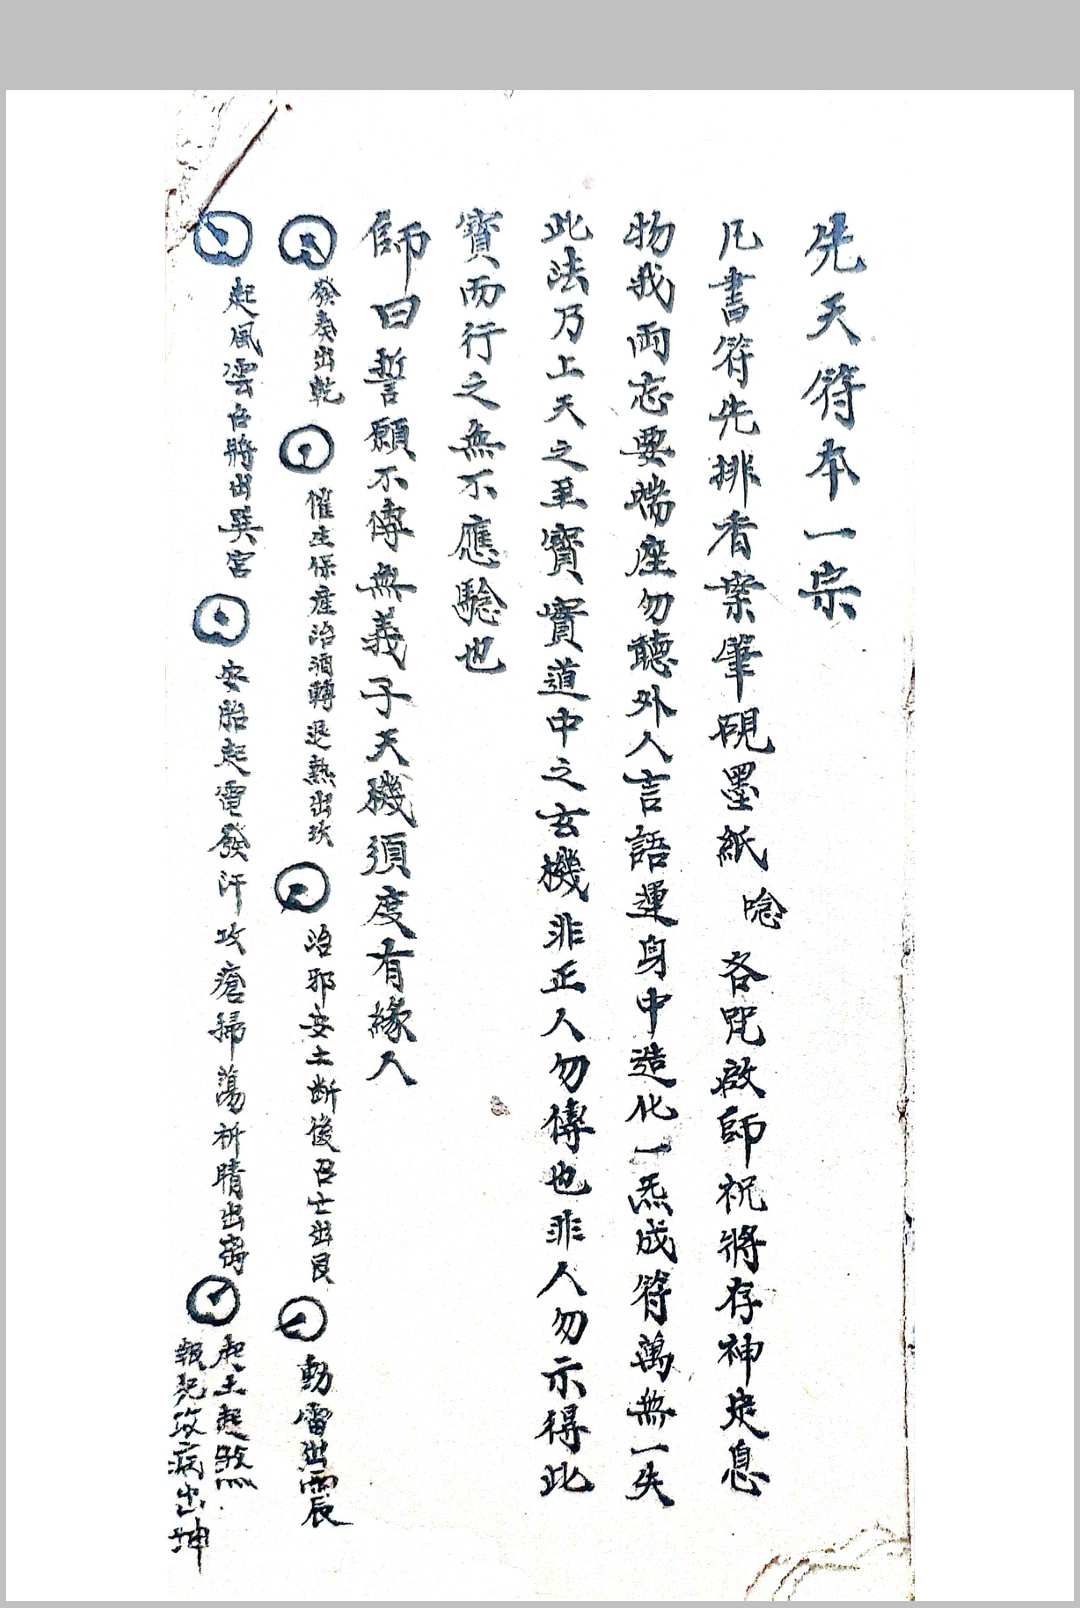 先天符本一宗
凡書符先排香案筆硯墨紙 唸 各咒啟師祝將存神定息
物我兩忘要端座勿聽外人言語運身中造化一炁成符萬無一失
此法乃上天之至寶實道中之玄機非正人勿傳也非人勿示得此
寶而行之無不應驗也
師曰誓願不傳無義子天機須度有緣人
發奏出乾 催生保產治酒轉退熱出坎 治邪安土斷後召亡出艮 動雷出震
起風雲召將出巽宮 安胎起電發汗攻瘡掃蕩祈晴出离 土起煞
報犯攻病出坤